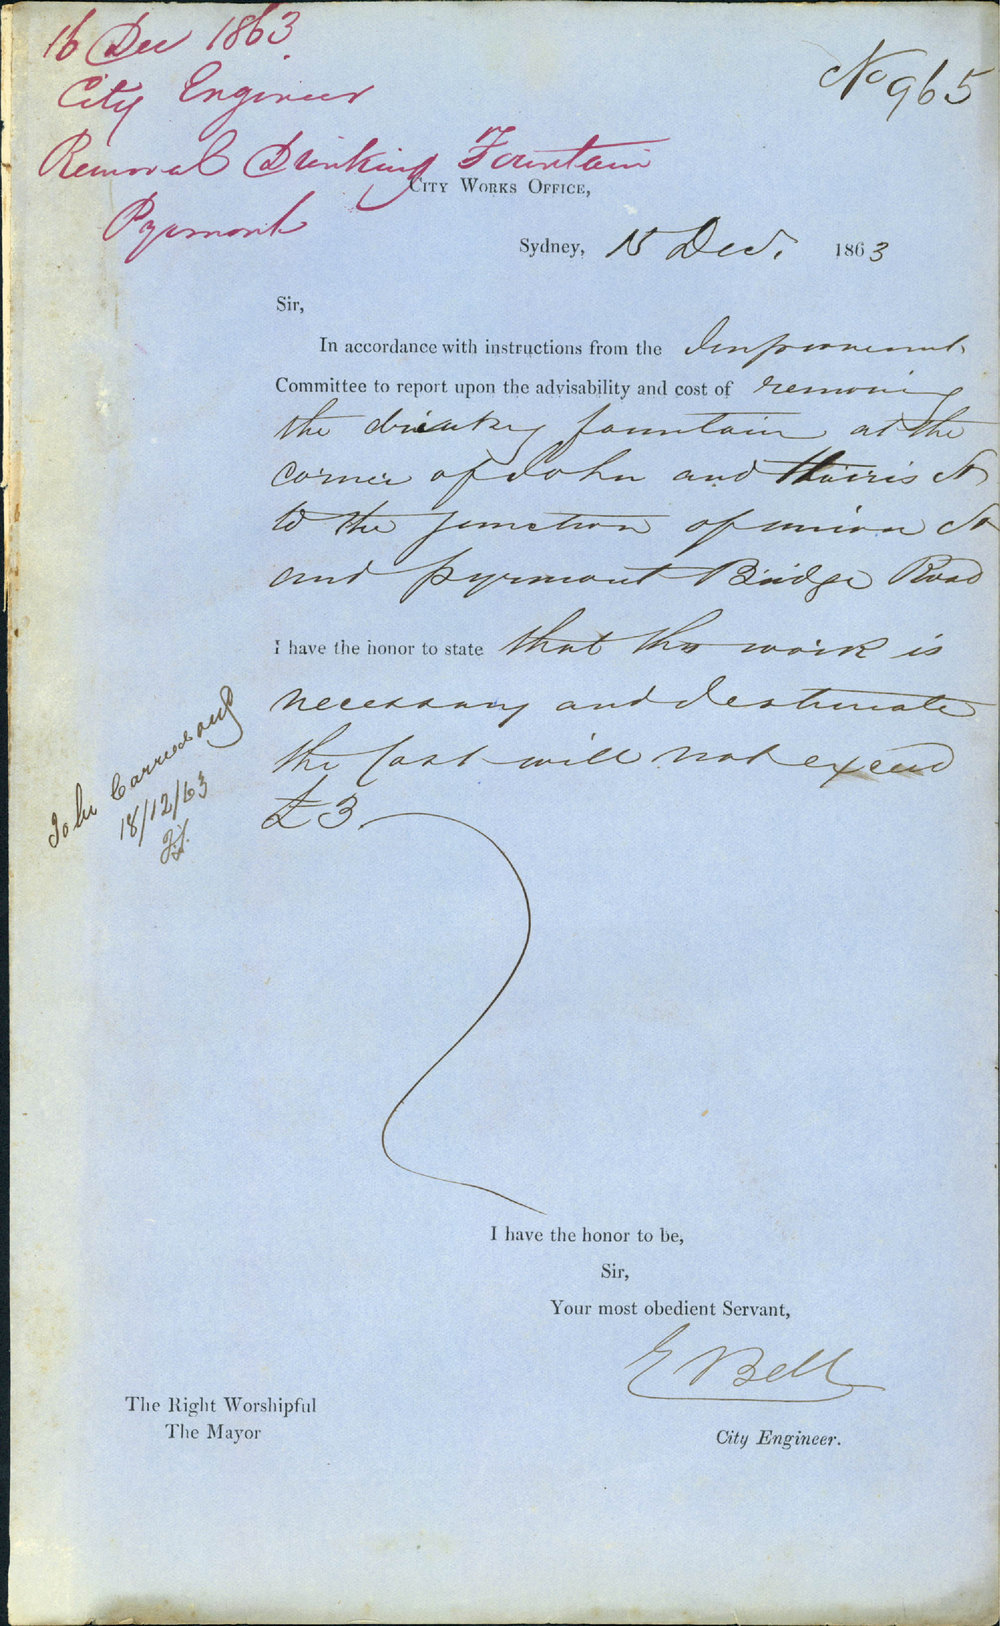 16 Dec 1863
City Engineer
Removal Drinking Fountain
Pyrmont
No 965
City Works Office,
Sydney, 15 Dec. 1863
Sir,
In accordance with instructions from the Improvement
Committee to report upon the advisability and cost of removing
the drinking fountain at the
corner of John and Harris St
to the junction of union St
and pyrmont Bridge Road
I have the honor to state that this work is
necessary and I estimate
the Cost will not exceed
£3
John Carried out
18/12/63
I have the honor to be,
Sir,
Your most obedient Servant,
E Bell
City Engineer.
The Right Worshipful
The Mayor